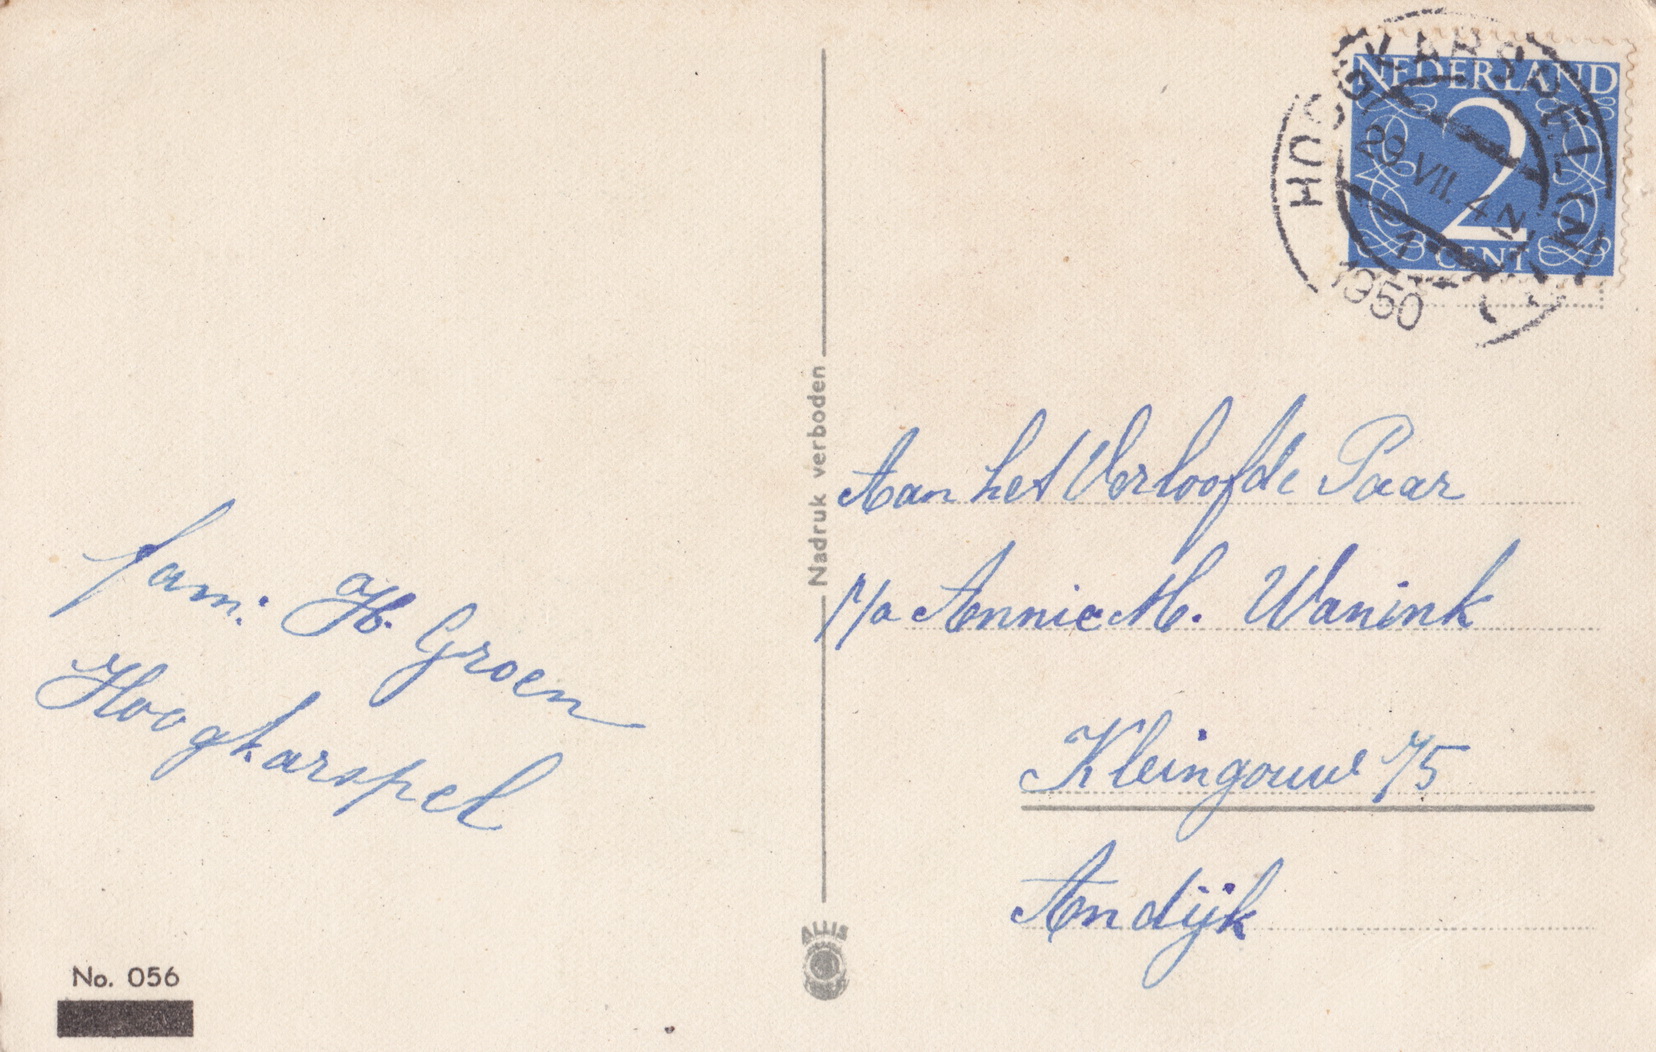 NEDERLAND
2
CENT
29 VII. 4 N
1
1950
Nadruk verboden
Aan het Verloofde Paar
p/a Annie M. Wanink
Kleingouw 75
Andijk
fam: H. Groen
Hoogkarspel
ALLIS
No. 056